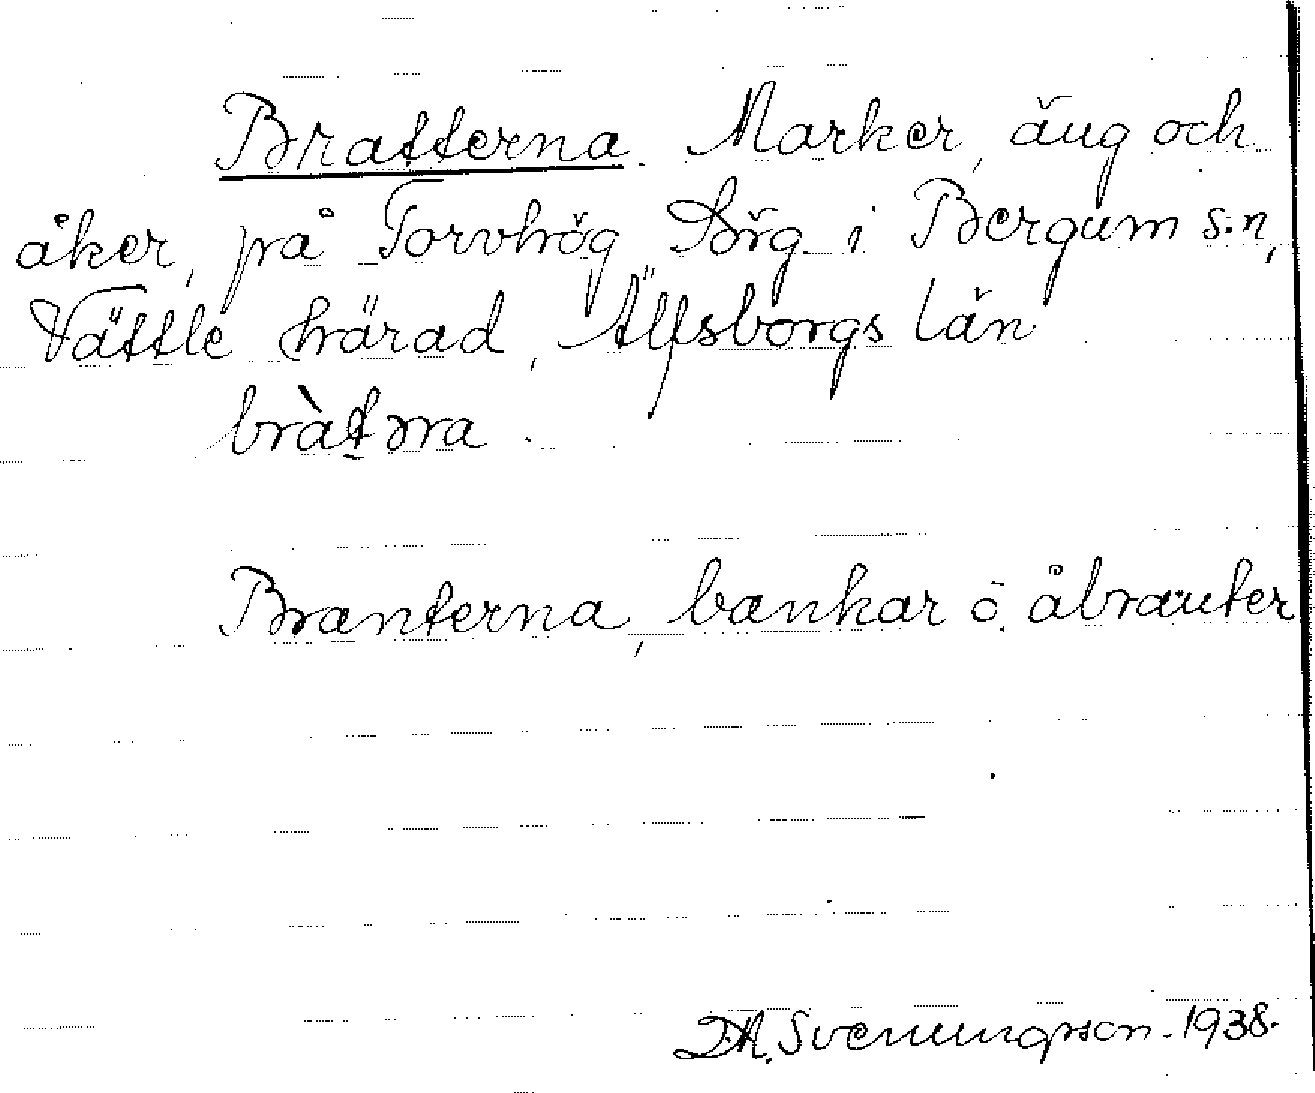 Bratterna. Marker, äng och
åker, på Torvhög Sörg. i Bergum s:n,
Vättle härad, Älfsborgs län
bràtəra.
Branterna, bankar o. åbranter
D.A. Svenungsson. 1938.